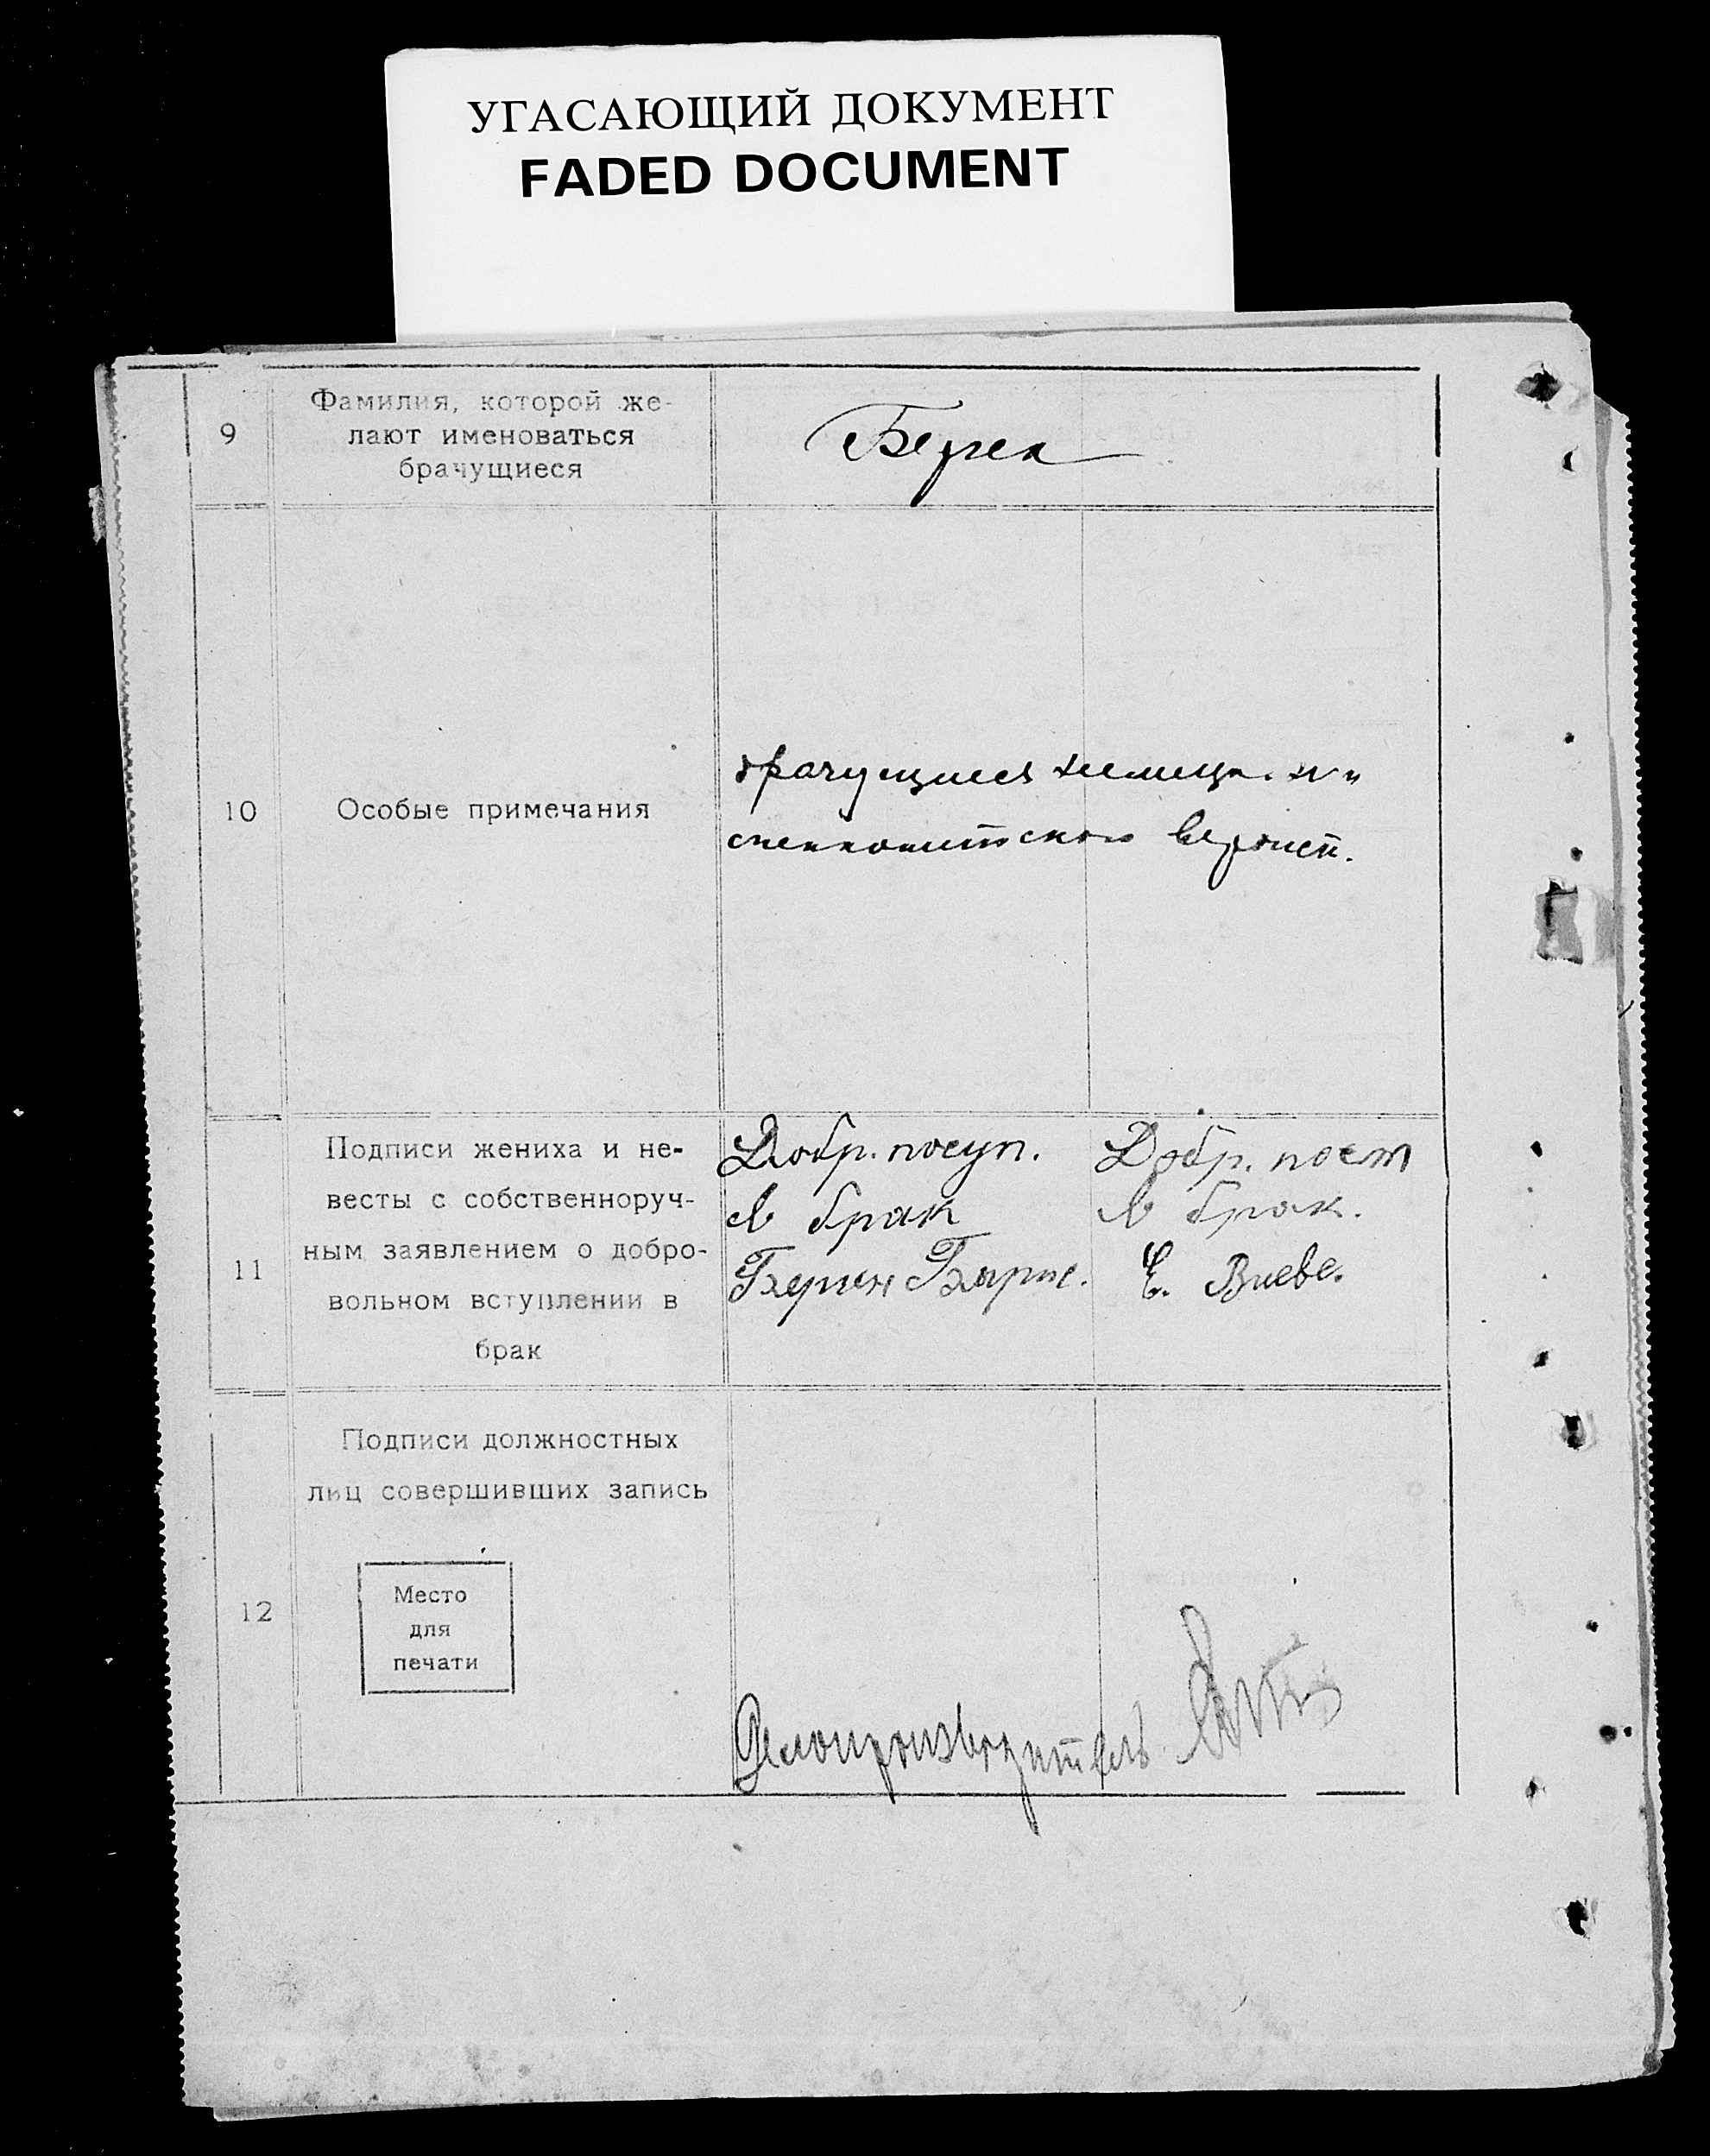 УГАСАЮЩИЙ ДОКУМЕНТ
FADED DOCUMENT
9
Фамилия, которой же-
лают именоваться
брачущиеся
Берген
10
Особые примечания
брачущиеся немецк.
меннонитского вероисп.
11
Подписи жениха и не-
весты с собственноруч-
ным заявлением о добро-
вольном вступлении в
брак
Добр. посуп.
в брак
Берген
Добр. пост
в брак.
Е.
12
Подписи должностных
лиц совершивших запись
Место
для
печати
Делопроизводитель